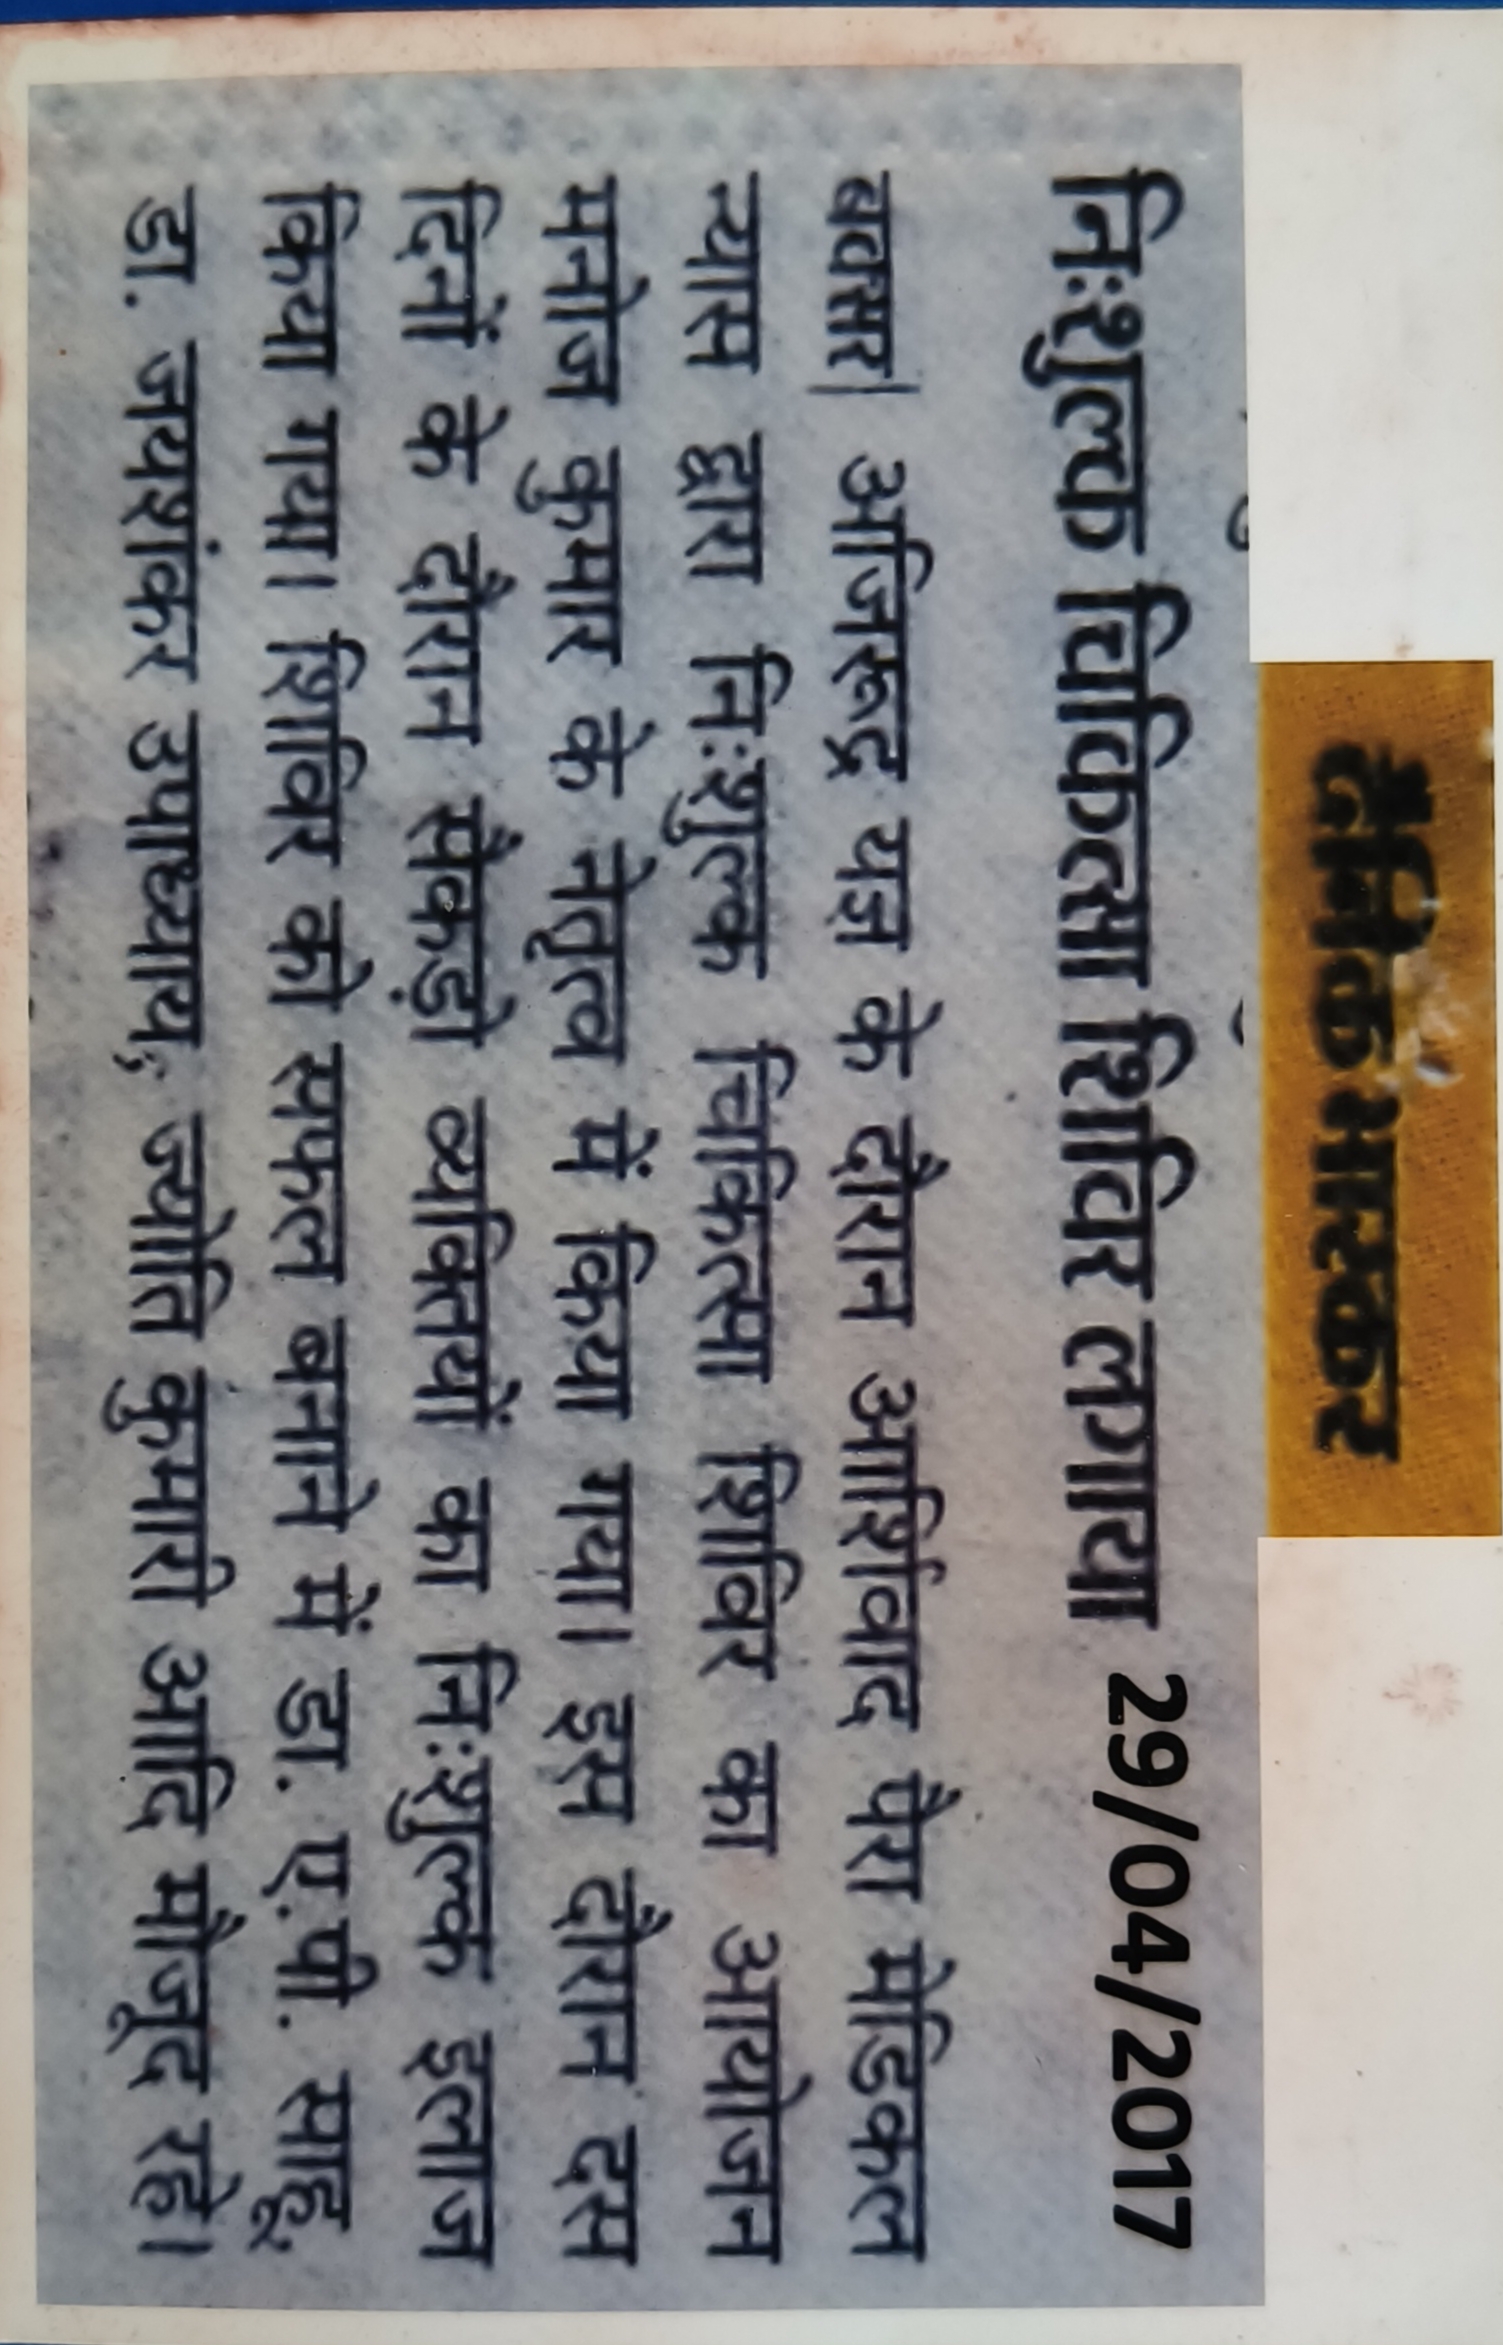 दैनिक भास्कर
निःशुल्क चिकित्सा शिविर लगाया 29/04/2017
बक्सर| अजिरूद्र यज्ञ के दौरान आर्शिवाद पैरा मेडिकल
न्यास द्वारा निःशुल्क चिकित्सा शिविर का आयोजन
मनोज कुमार के नेतृत्व में किया गया। इस दौरान दस
दिनों के दौरान सैकड़ो व्यक्तियों का निःशुल्क इलाज
किया गया। शिविर को सफल बनाने में डा. ए.पी. साहू,
डा. जयशंकर उपाध्याय, ज्योति कुमारी आदि मौजूद रहे।